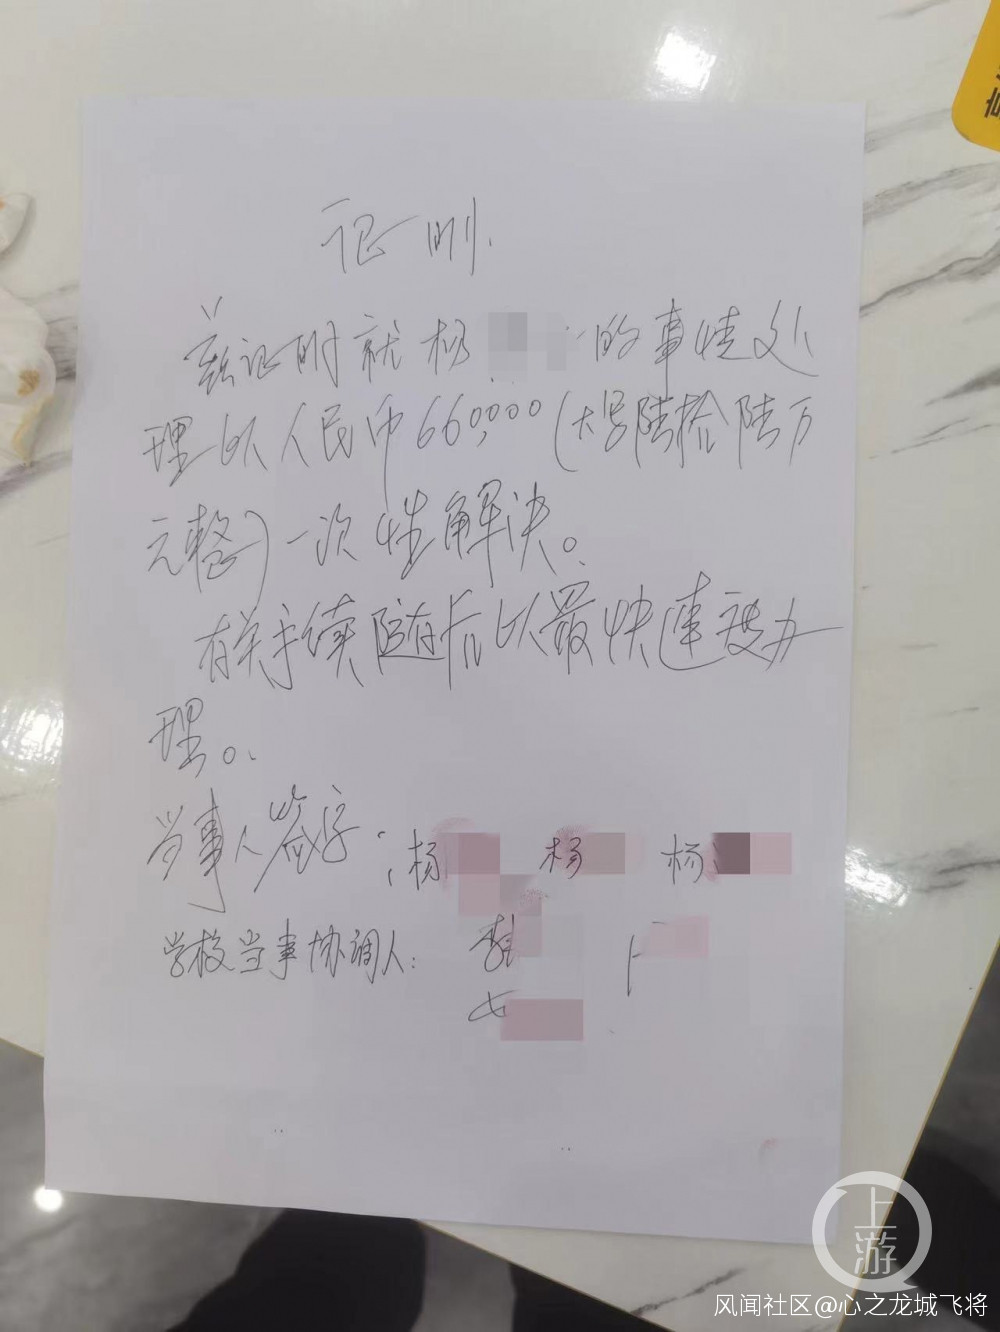 证明
兹证明就杨 的事情处
理以人民币660,000(大写陆拾陆万
元整)一次性解决。
有关手续随后以最快速度办
理。
当事人签字:杨 杨 杨
学校当事协调人: 李
上游
风闻社区@心之龙城飞将